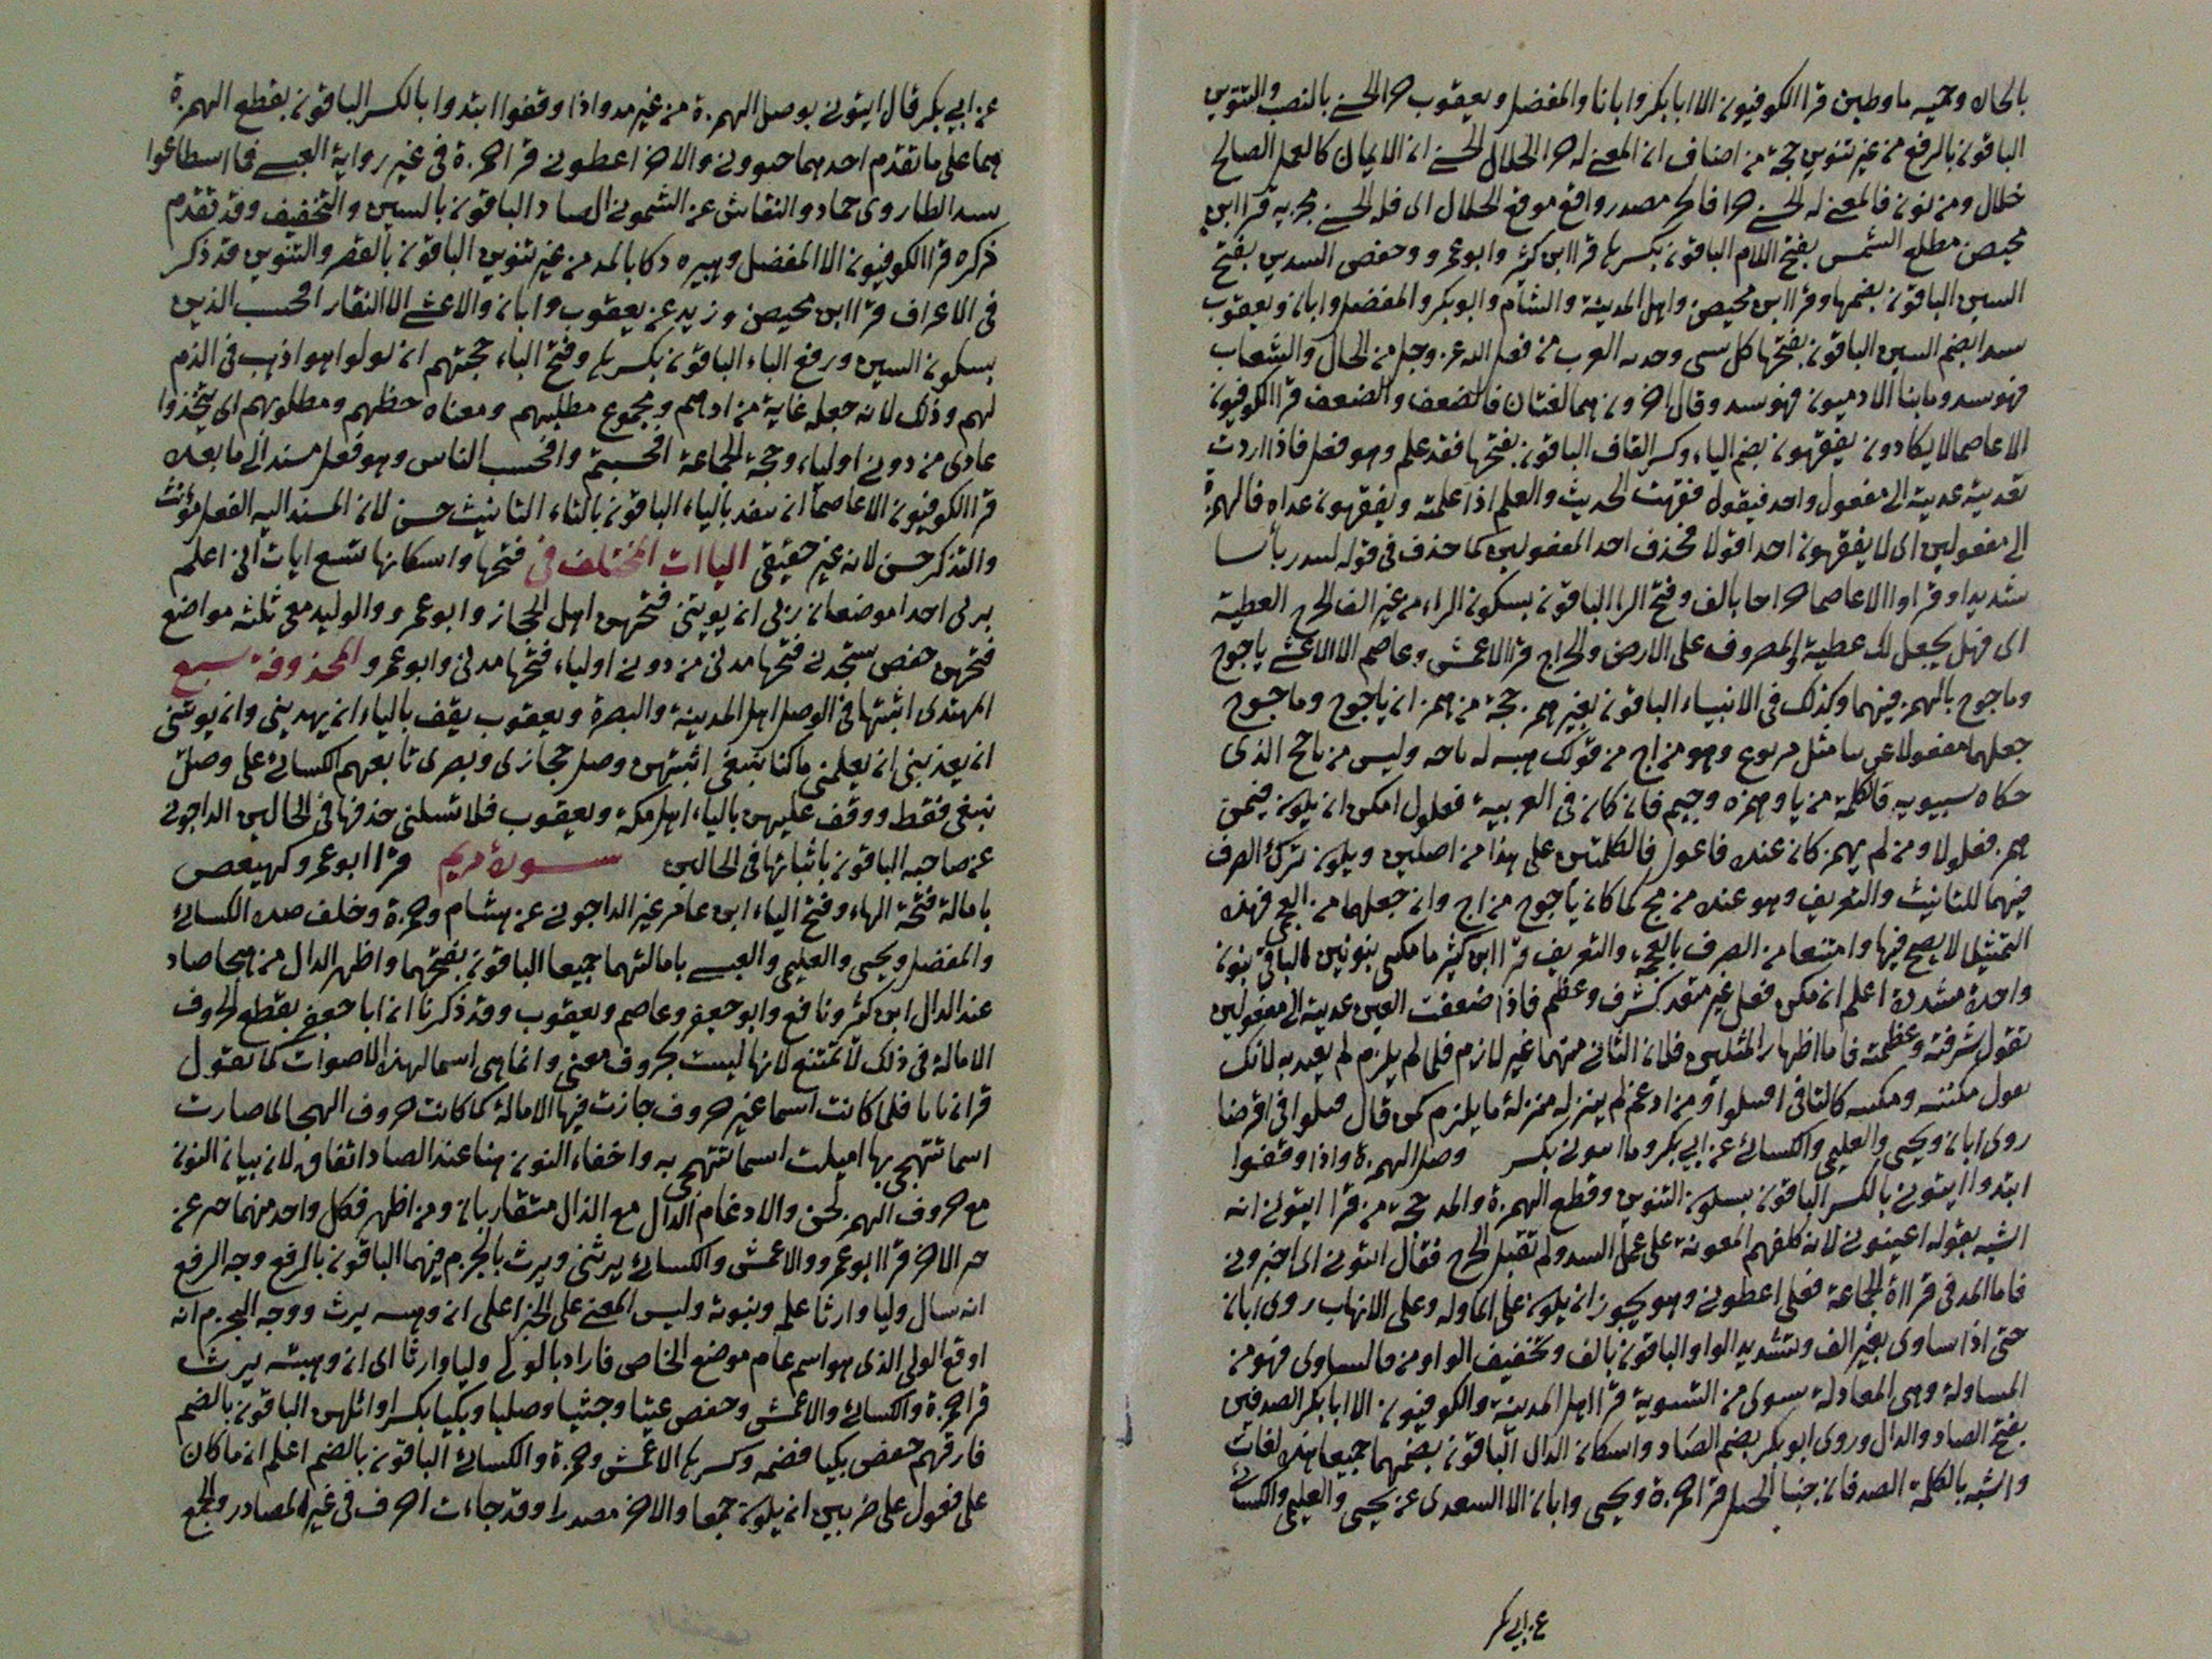 بالحاء وحميه ماوطين قرا الكوفيون الا ابا بكر وابانا والمفضل ويعقوب جزا الحسنى بالنصب والتنوين
الباقون بالرفع من غير تنوين حجة من اضاف ان المعنى له جزا الخلال الحسنى ان الايمان كالعمل الصالح
خلال ومن نون فالمعنى له الحسنى جزا فالجزا مصدر واقع موقع الحال اى فله الحسنى مجزية قرا ابن
محيصن مطلع الشمس بفتح اللام الباقون بكسرها قرا ابن كثير وابو عمرو وحفص السدين بفتح
السين الباقون بضمها وقرا ابن محيصن واهل المدينة والشام وابو بكر والمفضل وابان ويعقوب
سدا بضم السين الباقون بفتحها كل سى وحده العرب من فعل الله عز وجل من الجبال والشعاب
فهو سد وما بناه الادميون فهو سد وقال اخرون هما لغتان كالضعف والضعف قرا الكوفيون
الا عاصما لا يكادون يفقهون بضم الياء وكسر القاف الباقون بفتحها فقه علم وهو فعل فاذا اردت
تعديته عديته الى مفعول واحد فيقول فقهت الحديث والعلم اذا علمته ويفقهون عداه بالهمزة
الى مفعولين اى لا يفقهون احدا قولا فحذف احد المفعولين كما حذف فى قوله لينذر بأسا
شديدا وقراوا الا عاصما خراجا بالف وفتح الرا الباقون بسكون الراء من غير الف الخرج العطية
اى فهل نجعل لك عطية والمصروف على الارض والخراج قرا الاعمش وعاصم الا الاعشى ياجوج
وماجوج بالهمز فيهما وكذلك فى الانبياء الباقون بغير همز حجة من همز ان ياجوج وماجوج
جعلهما مفعولا عربيا مثل يربوع وهو من اج من قولك هبه له ياجه وليس من ياجج الذى
حكاه سيبويه فالكلمة من يا وهمزه وجيم فان كان فى العربية فعلول امكن ان يكون فيمن
همز فعلولا ومن لم يهمز كان عنده فاعول فالكلمتين على هذا من اصلين ويكون ترك الصرف
فيهما للتانيث والتعريف وهو عنده من مج كما كان ياجوج من اج وان جعلهما من العجمى فهذه
التمثيل لا يصح فيها وامتنعا من الصرف بالعجمة والتعريف قرا ابن كثير ما مكننى بنونين الباقى بنون
واحدة مشددة اعلم ان مكن فعل غير متعد كشرف وعظم فاذا ضعفت العين عديته الى مفعولين
تقول شرفته وعظمته فاما اظهار المثلين فلان الثانى منهما غير لازم فلما لم يلزم لم يعتد به لانك
تقول مكنتنه ومكنته كالتا فى اقتتلوا ومن ادغم لم ينزله منزلة ما يلزم كمن قال قتلوا فى اقتتلوا
روى ابان ويحيى والعليمى والكسائى عن ابى بكر وما ايتونى بكسر وصل الهمزة واذا وقفوا
ابتدوا ايتونى بالكسر الباقون بسكون التنوين وقطع الهمزة والمد حجة من قرا ايتونى انه
اشبه بقوله اعينونى لانه كلفهم المعونة على عمل السد ولم تقبل الخرج فقال ائتونى اى اخبرونى
فاما المد فى قراءة الجماعة فعلى اعطونى وهو يجوز ان يكون على المناوله وعلى الانهاب روى ابان
حتى اذا ساوى بغير الف وبتشديد الواو الباقون بالف وتخفيف الواو من قال ساوى فهو من
المساواة وهى المعادلة وسوى من التسوية قرا اهل المدينة والكوفيون الا ابا بكر الصدفين
بفتح الصاد والدال وروى ابو بكر بضم الصاد واسكان الدال الباقون بضمهما جميعا هذه لغات
واشبه بالكلمة الصدفان جنبا الجبل قرا حمزة ويحيى وابان الا السعدى عن يحيى والعليمى والكسائى
عن ابى بكر
عن ابى بكر قال ايتونى بوصل الهمزة من غير مد واذا وقفوا ابتدوا بالكسر الباقون بقطع الهمزة
هما على ما تقدم احدهما جيوونى والاخر اعطونى قرا حمزة فى غير رواية العبسى فما اسطاعوا
بتشديد الطا روى حماد والنقاش عن الشمونى الصاد الباقون بالسين والتخفيف وقد تقدم
ذكره قرا الكوفيون الا المفضل وهبيره دكا بالمد من غير تنوين الباقون بالقصر والتنوين قد ذكر
فى الاعراف قرا ابن محيصن وزيد عن يعقوب وابان والاعشى الا النقار افحسب الذين
بسكون السين ورفع الباء الباقون بكسرها وفتح الباء حجتهم ان لو لوا هو اذهب فى الذم
لهم وذلك لانه جعله غاية مرادهم ومجموع مطلبهم ومعناه حظهم ومطلوبهم اى يتخذوا
عبادى من دونى اولياء وحجة الجماعة افحسبتم وافحسب الناس وهو فعل مسند الى ما بعده
قرا الكوفيون الا عاصما ان ينفد بالياء الباقون بالتاء التانيث حسن لان المسند اليه الفعل مؤنث
والتذكير حسن لانه غير حقيقى الياات المختلف فى فتحها واسكانها تسع ايات انى اعلم
بربى احدا موضعان ربى ان يوتين فتحهن اهل الحجاز وابو عمرو والوليد معى ثلثه مواضع
فتحهن حفص ستجدنى فتحها مدنى من دونى اولياء فتحها مدنى وابو عمرو المحذوفة سبع
المهتدى اثبتها فى الوصل اهل المدينة والبصرة ويعقوب يقف بالياء ان يهدينى وان يوتنى
ان يعذبنى ان يعلمنى ما كنا نبغى اثبتهن وصل حجازى وبصرى تابعهم الكسائى على وصل
نبغى فقط ووقف عليهن بالياء اهل مكة ويعقوب فلا تسلنى حذفها فى الحالين الداجونى
عن صاحبه الباقون باثباتها فى الحالين سورة مريم قرا ابو عمرو كهيعص
بامالة فتحة الهاء وفتح الياء ابن عامر غير الداجونى عن هشام وحمزة وخلف ضده الكسائى
والمفضل ويحيى والعليمى والعبسى بامالتهما جميعا الباقون بفتحهما واظهر الدال من هجا صاد
عند الدال ابن كثير ونافع وابو جعفر وعاصم ويعقوب وقد ذكرنا ان ابا جعفر يقطع الحروف
الامالة فى ذلك لا تمتنع لانها ليست بحروف معنى وانما هى اسما لهذه الاصوات كما تقول
قرا ان يا با فلما كانت اسما غير حروف جازت فيها الامالة كما كانت حروف الهجا لما صارت
اسما تتهجى بها اميلت اسما تتهجى به واخفاء النون هنا عند الصاد اتفاق لان بيان النون
مع حروف الهمز لحن والادغام الدال مع الذال متقاربان ومن اظهر فكل واحد منهما حر عن
حر الاخر قرا ابو عمرو والاعمش والكسائى يرثنى ويرث بالجزم فيهما الباقون بالرفع وجه الرفع
انه سال وليا وارثا علمه ونبوته وليس المعنى على الجزا على ان وهبه يرث ووجه الجزم انه
اوقع الولى الذى هو اسم عام موضع الخاص فاراد بالولى وليا وارثا اى ان وهبته يرث
قرا حمزة والكسائى والاعمش وحفص عتيا وجثيا وصليا وبكيا بكسر اوائلهن الباقون بالضم
فارقهم حفص بكيا فضمه وكسرها الاعمش وحمزة والكسائى الباقون بالضم اعلم ان ما كان
على فعول على ضربين ان يكون جمعا والاخر مصدرا وقد جاءت احرف فى غير المصادر والجمع